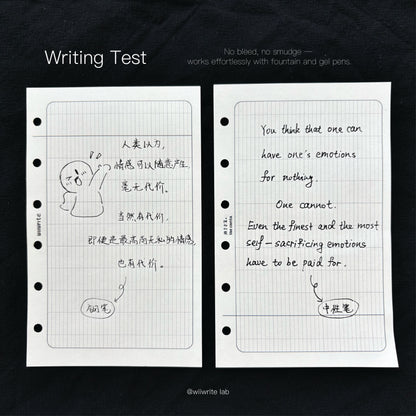 Writing Test
No bleed, no smudge —
works effortlessly with fountain and gel pens.
人类以为,
情感可以随意产生,
毫无代价。
当然有代价。
即使是最高尚无私的情感,
也有代价。
钢笔
wiiwrite
You think that one can
have one's emotions
for nothing.
One cannot.
Even the finest and the most
self-sacrificing emotions
have to be paid for.
中性笔
@wiiwrite lab